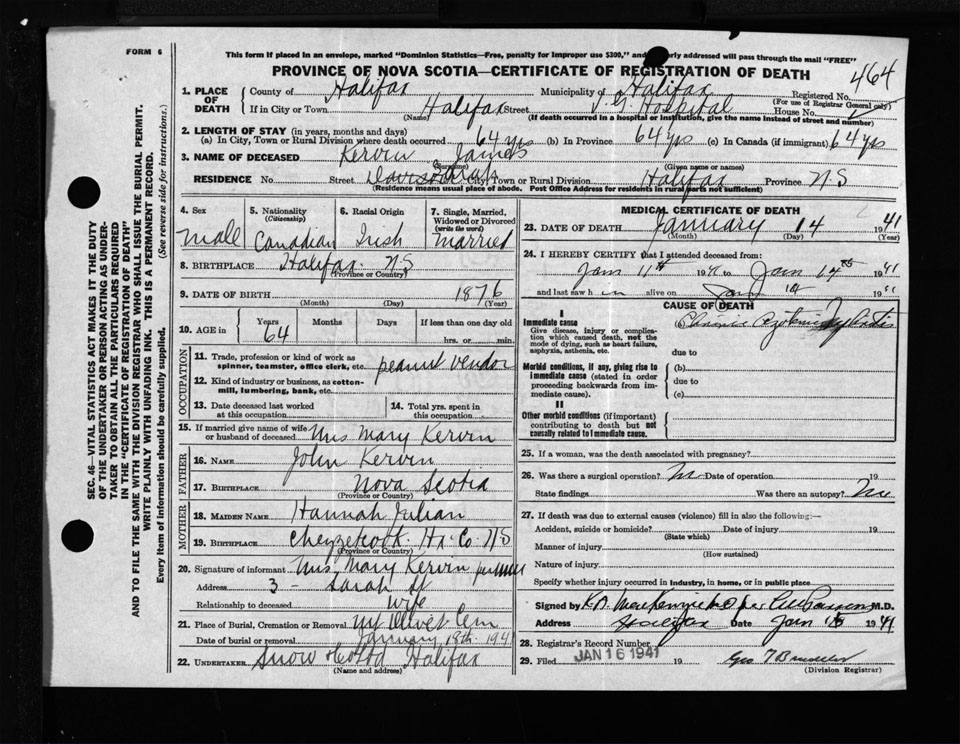 FORM 6
This form if placed in an envelope, marked "Dominion Statistics—Free, penalty for improper use $300," and properly addressed will pass through the mail "FREE"
PROVINCE OF NOVA SCOTIA—CERTIFICATE OF REGISTRATION OF DEATH
464
1. PLACE OF DEATH County of Halifax Municipality of Halifax Registered No.
(For use of Registrar General only)
If in City or Town Halifax Street V. G. Hospital House No.
(Name) (If death occurred in a hospital or institution, give the name instead of street and number)
2. LENGTH OF STAY (in years, months and days)
(a) In City, Town or Rural Division where death occurred 64 yrs (b) In Province 64 yrs (c) In Canada (if immigrant) 64 yrs
3. NAME OF DECEASED Kervin James
(Surname) (Given name or names)
RESIDENCE No. 3 Street City, Town or Rural Division Halifax Province N.S
(Residence means usual place of abode. Post Office Address for residents in rural parts not sufficient)
SEC. 46—VITAL STATISTICS ACT MAKES IT THE DUTY
OF THE UNDERTAKER OR PERSON ACTING AS UNDER-
TAKER TO OBTAIN ALL THE PARTICULARS REQUIRED
IN THE "CERTIFICATE OF REGISTRATION OF DEATH"
AND TO FILE THE SAME WITH THE DIVISION REGISTRAR WHO SHALL ISSUE THE BURIAL PERMIT.
WRITE PLAINLY WITH UNFADING INK. THIS IS A PERMANENT RECORD.
Every item of information should be carefully supplied. (See reverse side for instructions.)
4. Sex 5. Nationality (Citizenship) 6. Racial Origin 7. Single, Married, Widowed or Divorced (write the word)
Male Canadian Irish Married
8. BIRTHPLACE Halifax N.S
(Province or Country)
9. DATE OF BIRTH 1876
(Month) (Day) (Year)
10. AGE in Years Months Days If less than one day old
64 hrs. or min.
OCCUPATION
11. Trade, profession or kind of work as spinner, teamster, office clerk, etc. peanut vendor
12. Kind of industry or business, as cotton-mill, lumbering, bank, etc.
13. Date deceased last worked at this occupation
14. Total yrs. spent in this occupation
15. If married give name of wife or husband of deceased Mrs Mary Kervin
FATHER
16. NAME John Kervin
17. BIRTHPLACE Nova Scotia
(Province or Country)
MOTHER
18. MAIDEN NAME Hannah Julian
19. BIRTHPLACE Chezzetcook Hx. Co. N.S
(Province or Country)
20. Signature of informant Mrs Mary Kervin
Address 3 - Sarah St
Relationship to deceased wife
21. Place of Burial, Cremation or Removal Mt Olivet Cem
Date of burial or removal January 18th. 1941
22. UNDERTAKER Snow Halifax
(Name and address)
MEDICAL CERTIFICATE OF DEATH
23. DATE OF DEATH January 14 1941
(Month) (Day) (Year)
24. I HEREBY CERTIFY that I attended deceased from:
Jan 11th 1941 to Jan 14th 1941
and last saw h im alive on Jan 14 1941
CAUSE OF DEATH
I
Immediate cause
Give disease, injury or complication which caused death, not the mode of dying, such as heart failure, asphyxia, asthenia, etc.
Chronic
due to
Morbid conditions, if any, giving rise to immediate cause (stated in order proceeding backwards from immediate cause).
(b)
due to
(c)
II
Other morbid conditions (if important) contributing to death but not causally related to immediate cause.
25. If a woman, was the death associated with pregnancy?
26. Was there a surgical operation? No Date of operation 19
State findings Was there an autopsy? No
27. If death was due to external causes (violence) fill in also the following:—
Accident, suicide or homicide? Date of injury 19
(State which)
Manner of injury
(How sustained)
Nature of injury
Specify whether injury occurred in industry, in home, or in public place
Signed by K.A. MacKenzie M.D per M.D.
Address Halifax Date Jan 1941
28. Registrar's Record Number
29. Filed JAN 16 1941 19 Geo T
(Division Registrar)